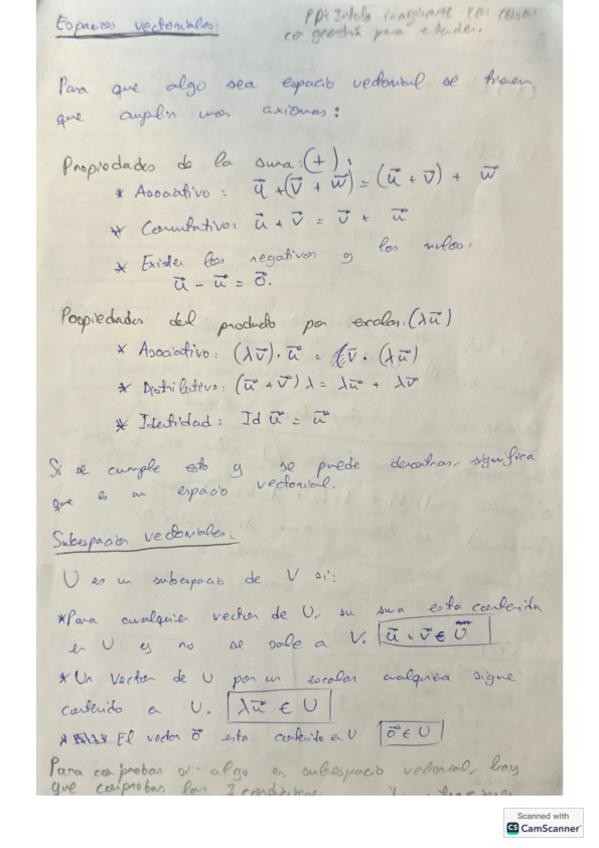 Espacios vectoriales:
PD: Intento imaginarte las cosas
con geometría para entender.
Para que algo sea espacio vectorial se tienen
que cumplir unos axiomas:
Propiedades de la suma: (+):
* Asociativo: u⃗ + (v⃗ + w⃗) = (u⃗ + v⃗) + w⃗
* Conmutativo: u⃗ + v⃗ = v⃗ + u⃗
* Existen los negativos y los nulos:
u⃗ - u⃗ = o⃗.
Propiedades del producto por escalar: (λu⃗)
* Asociativo: (λv⃗) · u⃗ = v⃗ · (λu⃗)
* Distributivo: (u⃗ + v⃗) λ = λu⃗ + λv⃗
* Identidad: Id u⃗ = u⃗
Si se cumple esto y se puede demostrar, significa
que es un espacio vectorial.
Subespacios vectoriales:
U es un subespacio de V si:
* Para cualquier vector de U, su suma esta contenida
en U es no se sale a V. u⃗ + v⃗ ∈ U
* Un vector de U por un escalar cualquiera sigue
contenido en U. λu⃗ ∈ U
* El vector o⃗ esta contenido en U o⃗ ∈ U
Para comprobar si algo es subespacio vectorial, hay
que comprobar las 3 condiciones
Scanned with
CS CamScanner